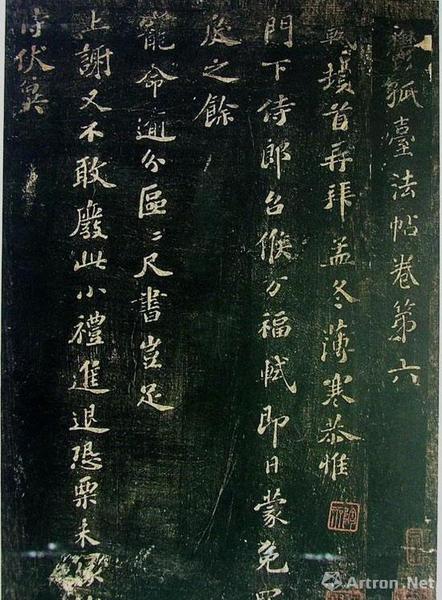 鬱孤臺法帖卷第六
軾頓首再拜孟冬薄寒恭惟
門下侍郎台候万福軾即日蒙免罪
戾之餘
寵命逾分區〻尺書豈足
上謝又不敢廢此小禮進退恐栗未
待伏冀
Artron.Net